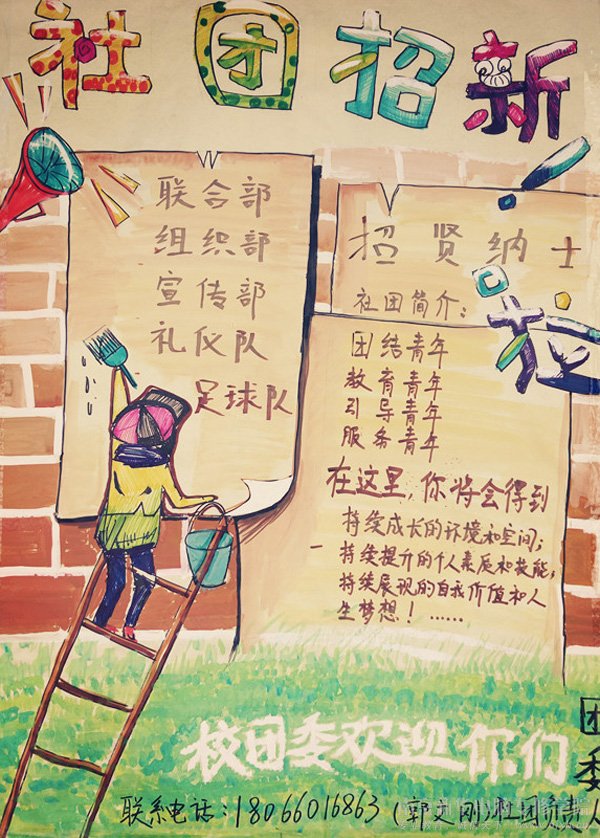 社团招新
联合部
组织部
宣传部
礼仪队
足球队
招贤纳士
社团简介:
团结青年
教育青年
引导青年
服务青年
在这里,你将会得到
持续成长的环境和空间;
持续提升的个人素质和技能;
持续展现的自我价值和人
生梦想!……
校团委欢迎你们
团委
联系电话:18066016863(郭文刚)社团负责人